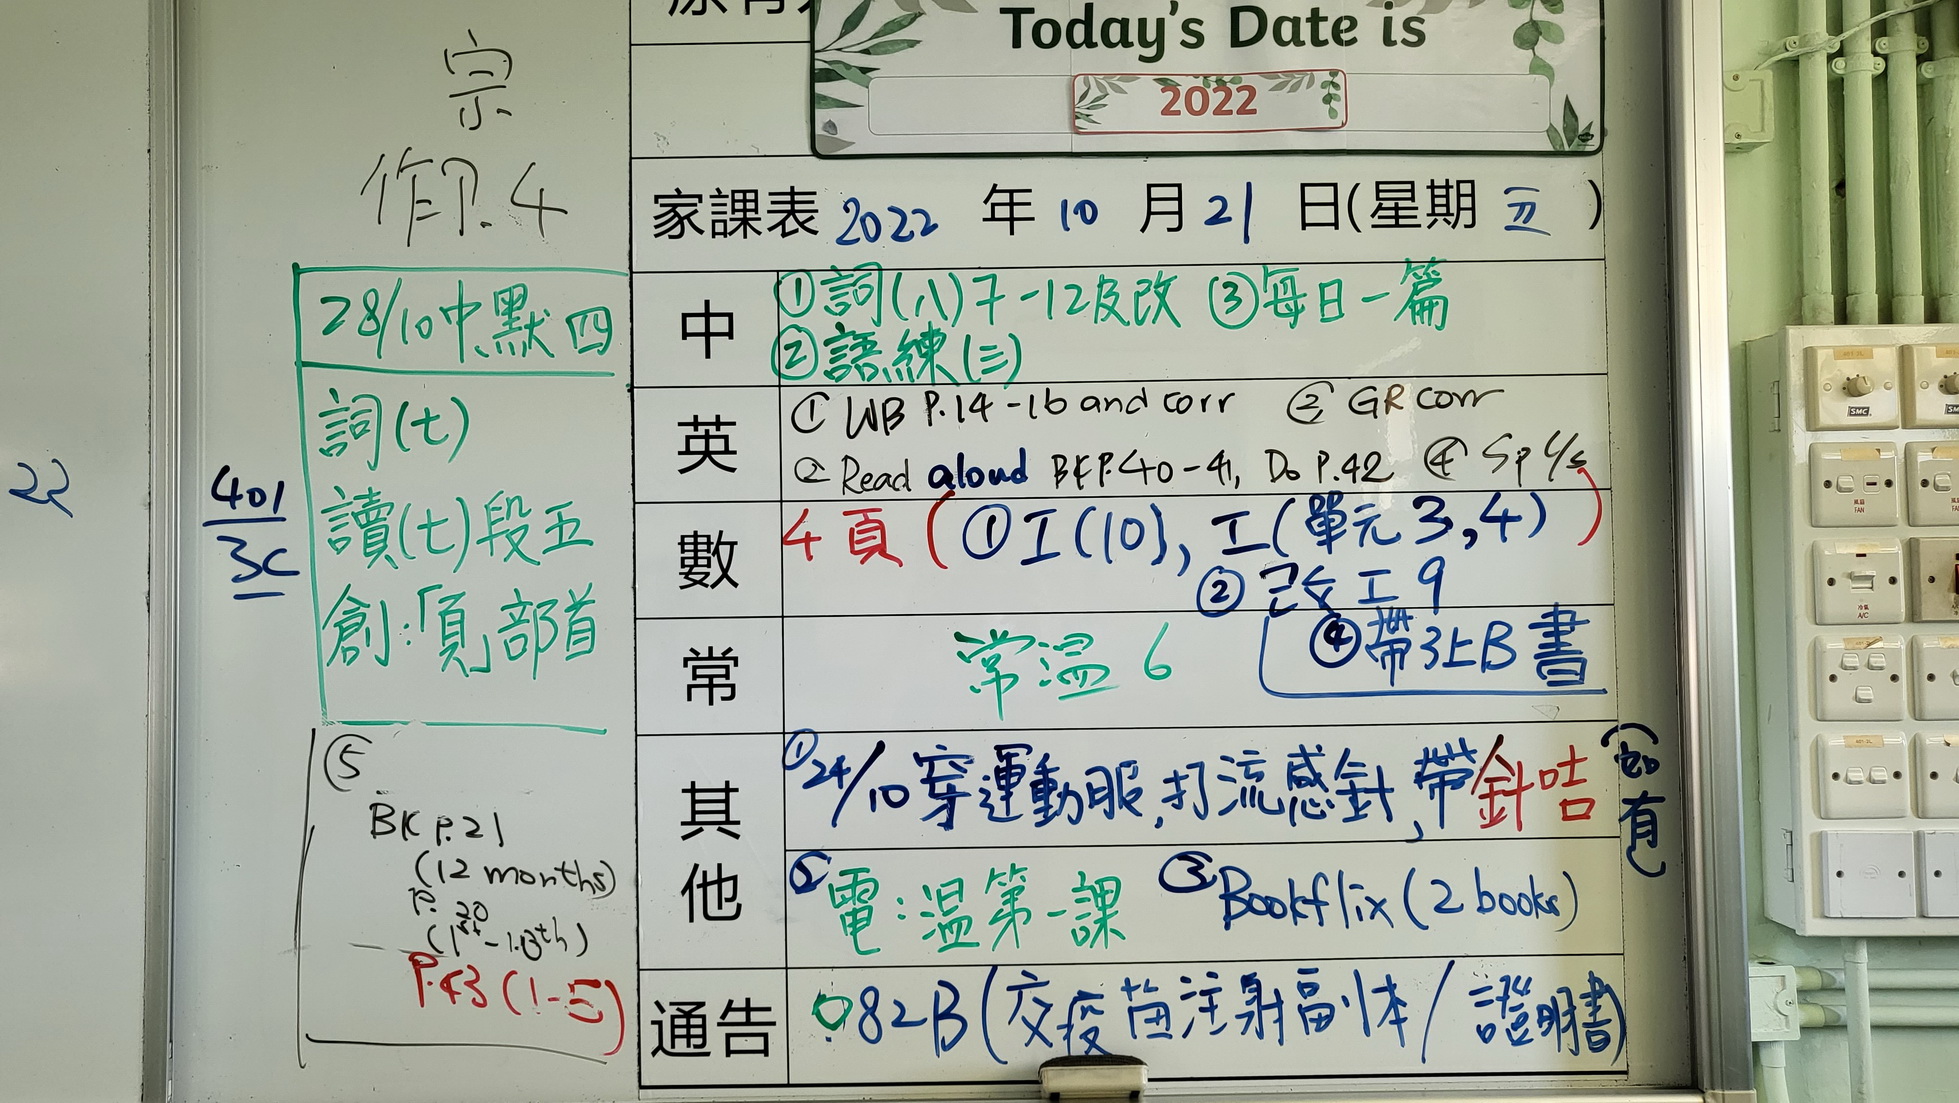 Today's Date is
2022
家課表 2022 年 10 月 21 日(星期 五 )
中
①詞(八)7-12及改 ③每日一篇
②語練(三)
英
① WB P.14-16 and corr ② GR corr
② Read aloud BK P.40-41, Do P.42 ④ Sp
數
4頁(①工(10), 工(單元3,4))
②改工9
④帶3上B書
常
常温6
其他
①24/10穿運動服,打流感針,帶針咭(如有)
②電:温第一課 ③Bookflix(2 books)
通告
082B(交疫苗注射副本/證明書)
宗
作P.4
28/10中.默四
詞(七)
讀(七)段五
創:「頁」部首
401
3C
22
⑤
BK P.21
(12 months)
P. 20
P.43(1-5)
SMC
FAN
A/C